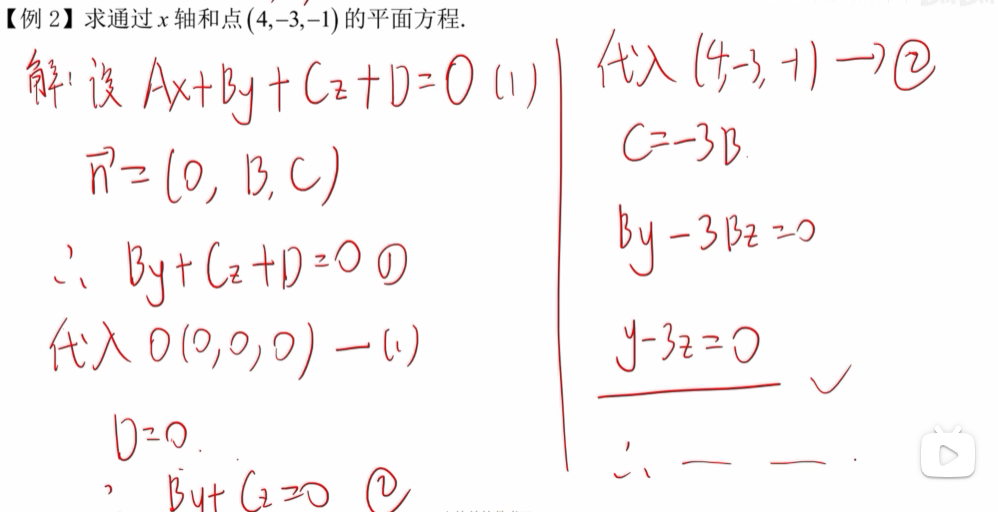 【例 2】求通过 x 轴和点(4,−3,−1)的平面方程.
解: 设 Ax+By+Cz+D=0 (1)
n⃗=(0, B, C)
∴ By+Cz+D=0 ①
代入 O(0,0,0) — (1)
D=0.
∴ By+Cz=0 ②
代入 (4,−3,−1) → ②
C=−3B.
By−3Bz=0
y−3z=0 ✓
∴ — — .